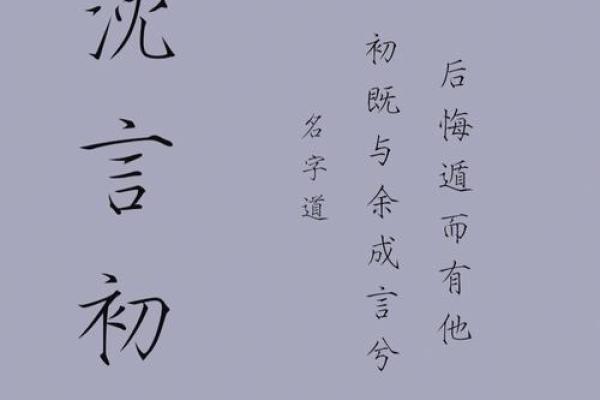 沈言初
名字道
初既与余成言兮
后悔遁而有他